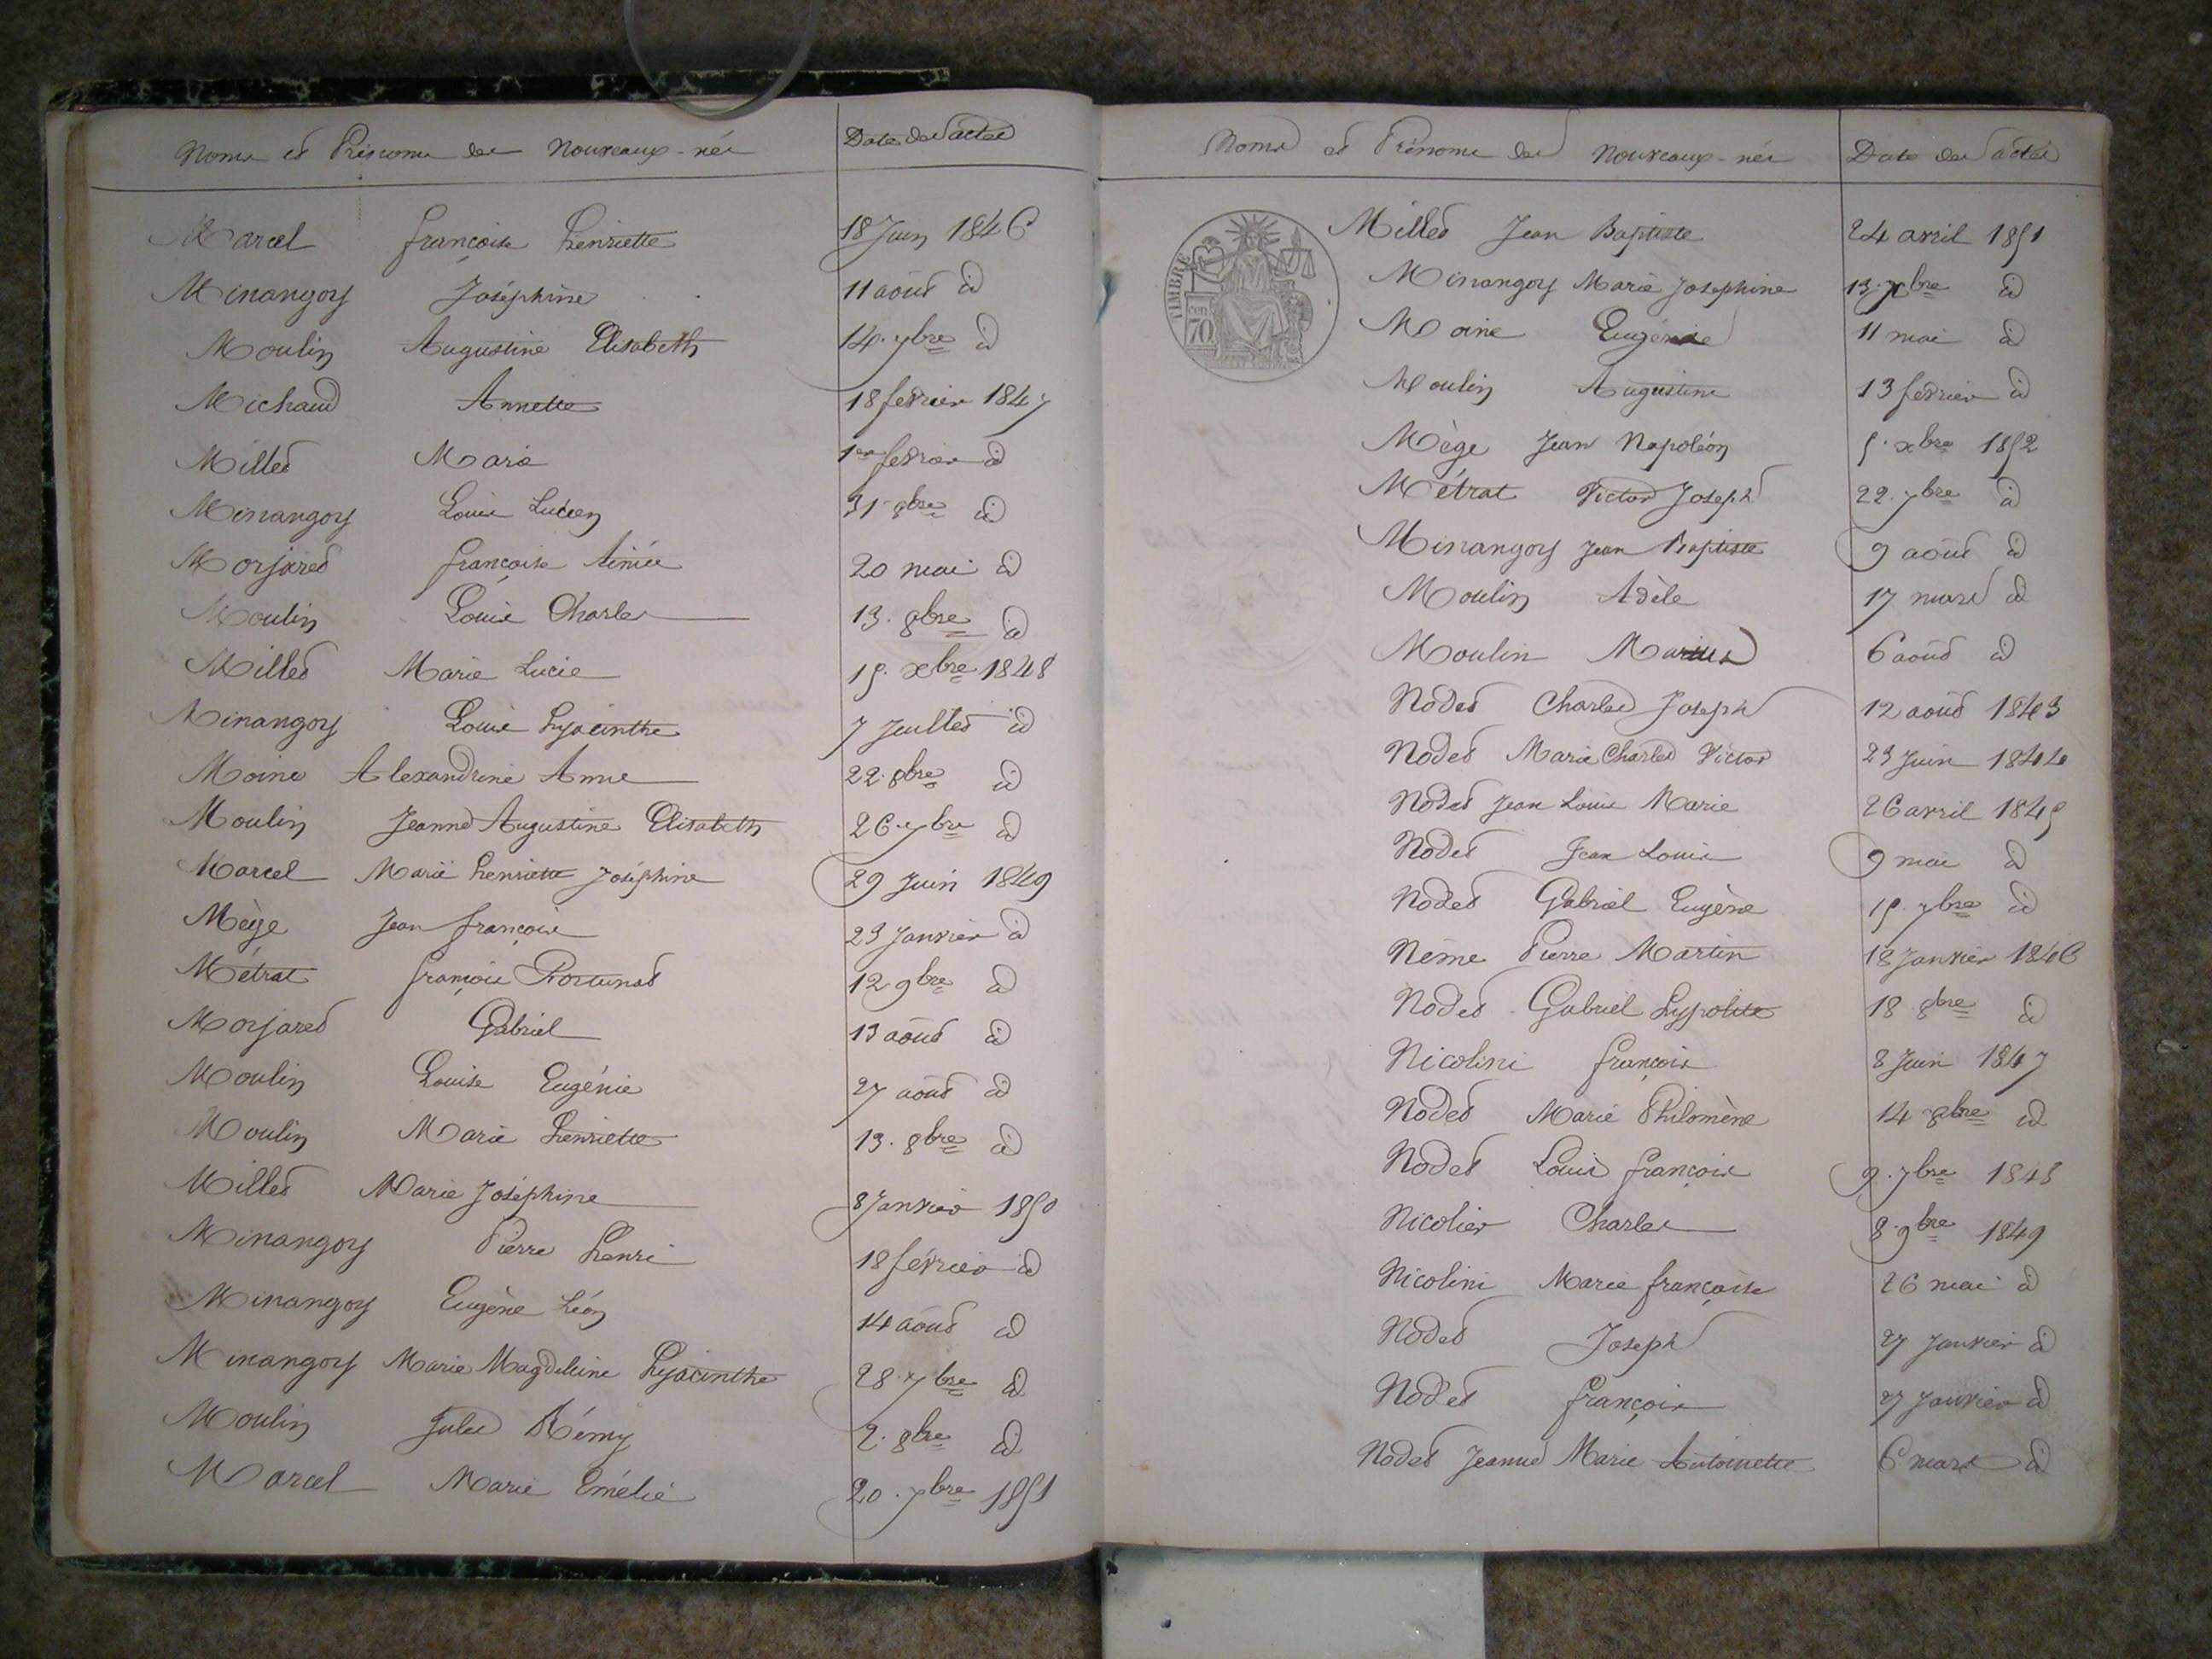 Noms et Prénoms des Nouveaux-nés Date des actes
Marcel françoise henriette 18 Juin 1846
Minangoy Joséphine 11 août id
Moulin Augustine Elisabeth 14. 7bre id
Michaud Annette 18 février 1847
Millet Marie 1er février id
Minangoy Louis Lucien 31 8bre id
Morjaret françoise Aimée 20 mai id
Moulin Louis Charles 13. 8bre id
Millet Marie Lucie 15. xbre 1848
Minangoy Louis hyacinthe 7 Juillet id
Moine Alexandrine Anne 22. 8bre id
Moulin Jeanne Augustine Elisabeth 26. 7bre id
Marcel Marie henriette Joséphine 29 Juin 1849
Mège Jean françois 23 Janvier id
Métrat françois Fortunat 12 9bre id
Morjaret Gabriel 13 août id
Moulin Louise Eugénie 27 août id
Moulin Marie henriette 13. 8bre id
Millet Marie Joséphine 8 Janvier 1850
Minangoy Pierre henri 18 février id
Minangoy Eugène Léon 14 août id
Minangoy Marie Magdeleine hyacinthe 28. 7bre id
Moulin Jules Rémy 2. 8bre id
Marcel Marie Emélie 20. 7bre 1851
Noms et Prénoms des Nouveaux-nés Date des actes
TIMBRE
70 cen
Millet Jean Baptiste 24 avril 1851
Minangoy Marie Josephine 13. xbre id
Moine Eugénie 11 mai id
Moulin Augustine 13 février id
Mège Jean Napoléon 5. xbre 1852
Métrat Victor Joseph 22. 7bre id
Minangoy Jean Baptiste 9 août id
Moulin Adèle 17 mars id
Moulin Marius 6 août id
Nodet Charles Joseph 12 août 1843
Nodet Marie Charles Victor 23 Juin 1844
Nodet Jean Louis Marie 26 avril 1845
Nodet Jean Louis 9 mai id
Nodet Gabriel Eugène 15. 7bre id
Nême Pierre Martin 18 Janvier 1846
Nodet Gabriel hypolite 18 8bre id
Nicolini françois 8 Juin 1847
Nodet Marie Philomène 14 8bre id
Nodet Louis françois 9. 7bre 1848
Nicolier Charles 8. 9bre 1849
Nicolini Marie françoise 26 mai id
Nodet Joseph 27 Janvier id
Nodet françois 27 Janvier id
Nodet Jeanne Marie Antoinette 6 mars id